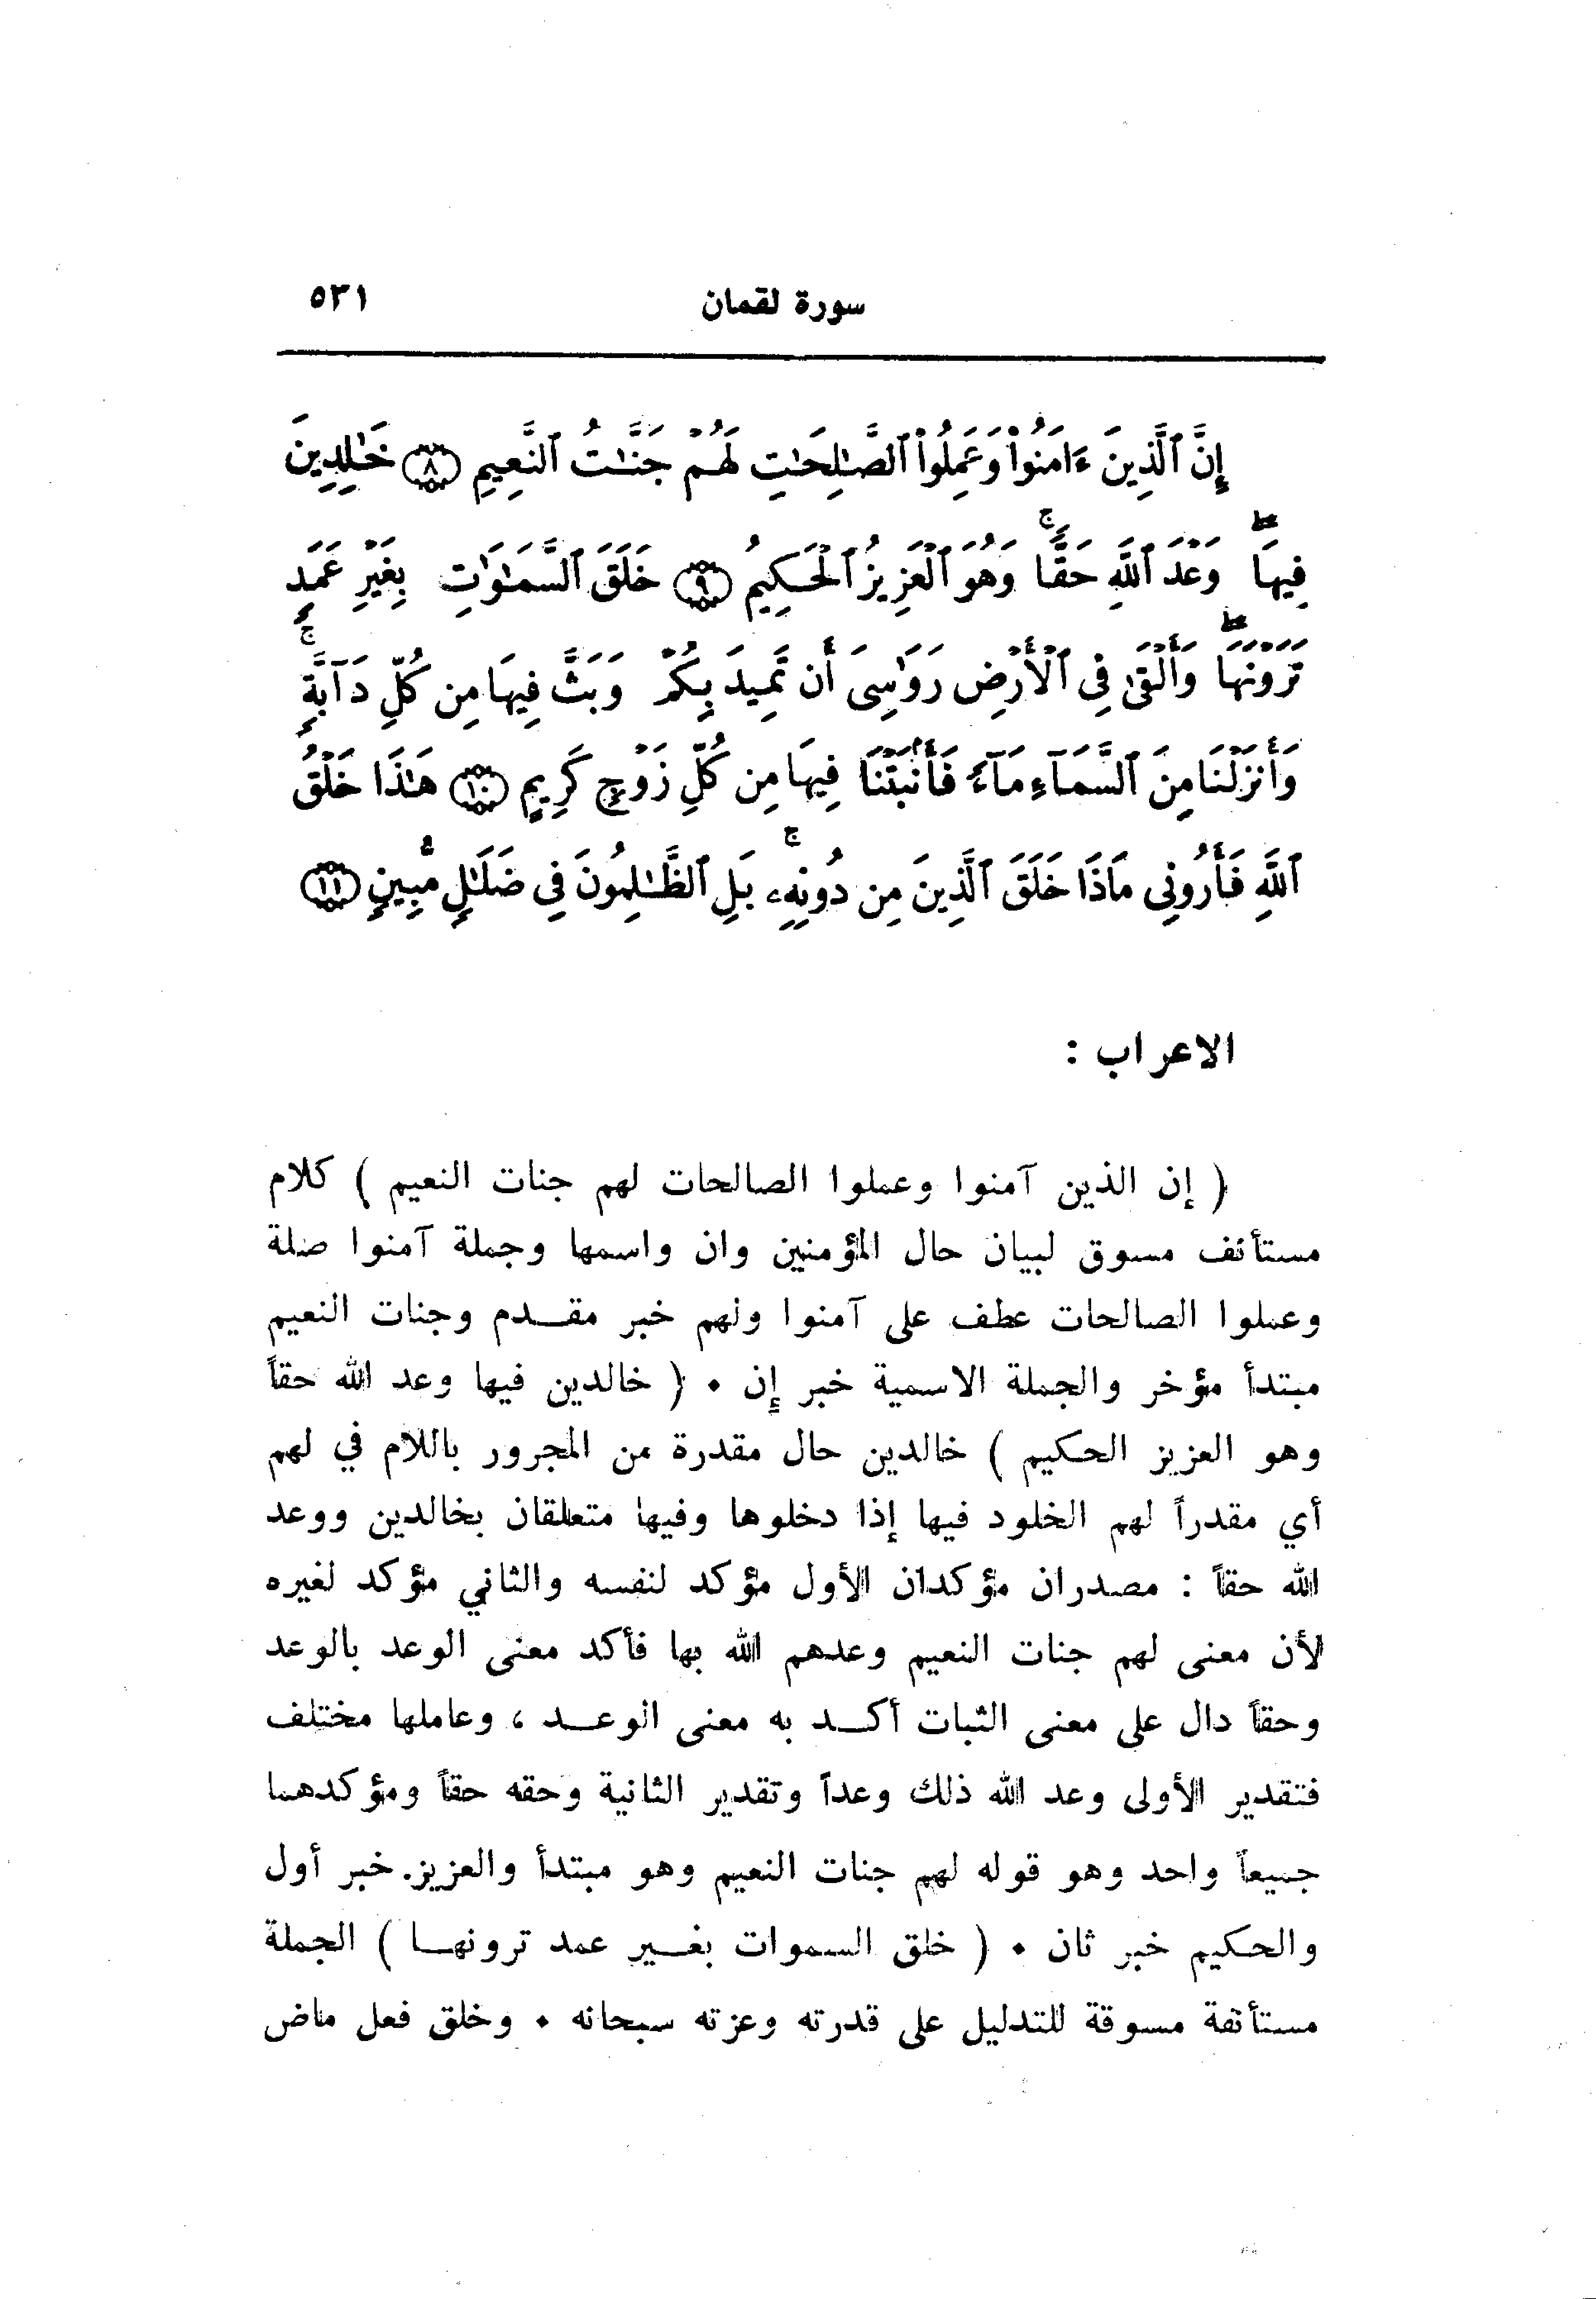 سورة لقمان ٥٣١
إِنَّ ٱلَّذِينَ ءَامَنُوا۟ وَعَمِلُوا۟ ٱلصَّـٰلِحَـٰتِ لَهُمْ جَنَّـٰتُ ٱلنَّعِيمِ ﴿٨﴾ خَـٰلِدِينَ
فِيهَا ۖ وَعْدَ ٱللَّهِ حَقًّا ۚ وَهُوَ ٱلْعَزِيزُ ٱلْحَكِيمُ ﴿٩﴾ خَلَقَ ٱلسَّمَـٰوَٰتِ بِغَيْرِ عَمَدٍ
تَرَوْنَهَا ۖ وَأَلْقَىٰ فِى ٱلْأَرْضِ رَوَٰسِىَ أَن تَمِيدَ بِكُمْ وَبَثَّ فِيهَا مِن كُلِّ دَآبَّةٍ ۚ
وَأَنزَلْنَا مِنَ ٱلسَّمَآءِ مَآءً فَأَنۢبَتْنَا فِيهَا مِن كُلِّ زَوْجٍ كَرِيمٍ ﴿١٠﴾ هَـٰذَا خَلْقُ
ٱللَّهِ فَأَرُونِى مَاذَا خَلَقَ ٱلَّذِينَ مِن دُونِهِۦ ۚ بَلِ ٱلظَّـٰلِمُونَ فِى ضَلَـٰلٍ مُّبِينٍ ﴿١١﴾
الاعراب :
( إن الذين آمنوا وعملوا الصالحات لهم جنات النعيم ) كلام
مستأنف مسوق لبيان حال المؤمنين وان واسمها وجملة آمنوا صلة
وعملوا الصالحات عطف على آمنوا ولهم خبر مقـــدم وجنات النعيم
مبتدأ مؤخر والجملة الاسمية خبر إن ٠ ( خالدين فيها وعد الله حقاً
وهو العزيز الحكيم ) خالدين حال مقدرة من المجرور باللام في لهم
أي مقدراً لهم الخلود فيها إذا دخلوها وفيها متعلقان بخالدين ووعد
الله حقاً : مصدران مؤكدان الأول مؤكد لنفسه والثاني مؤكد لغيره
لأن معنى لهم جنات النعيم وعدهم الله بها فأكد معنى الوعد بالوعد
وحقاً دال على معنى الثبات أكـــد به معنى الوعـــد ، وعاملها مختلف
فتقدير الأولى وعد الله ذلك وعداً وتقدير الثانية وحقه حقاً ومؤكدهما
جميعاً واحد وهو قوله لهم جنات النعيم وهو مبتدأ والعزيز. خبر أول
والحكيم خبر ثان ٠ ( خلق السموات بغـــير عمد ترونهـــا ) الجملة
مستأنفة مسوقة للتدليل على قدرته وعزته سبحانه ٠ وخلق فعل ماض